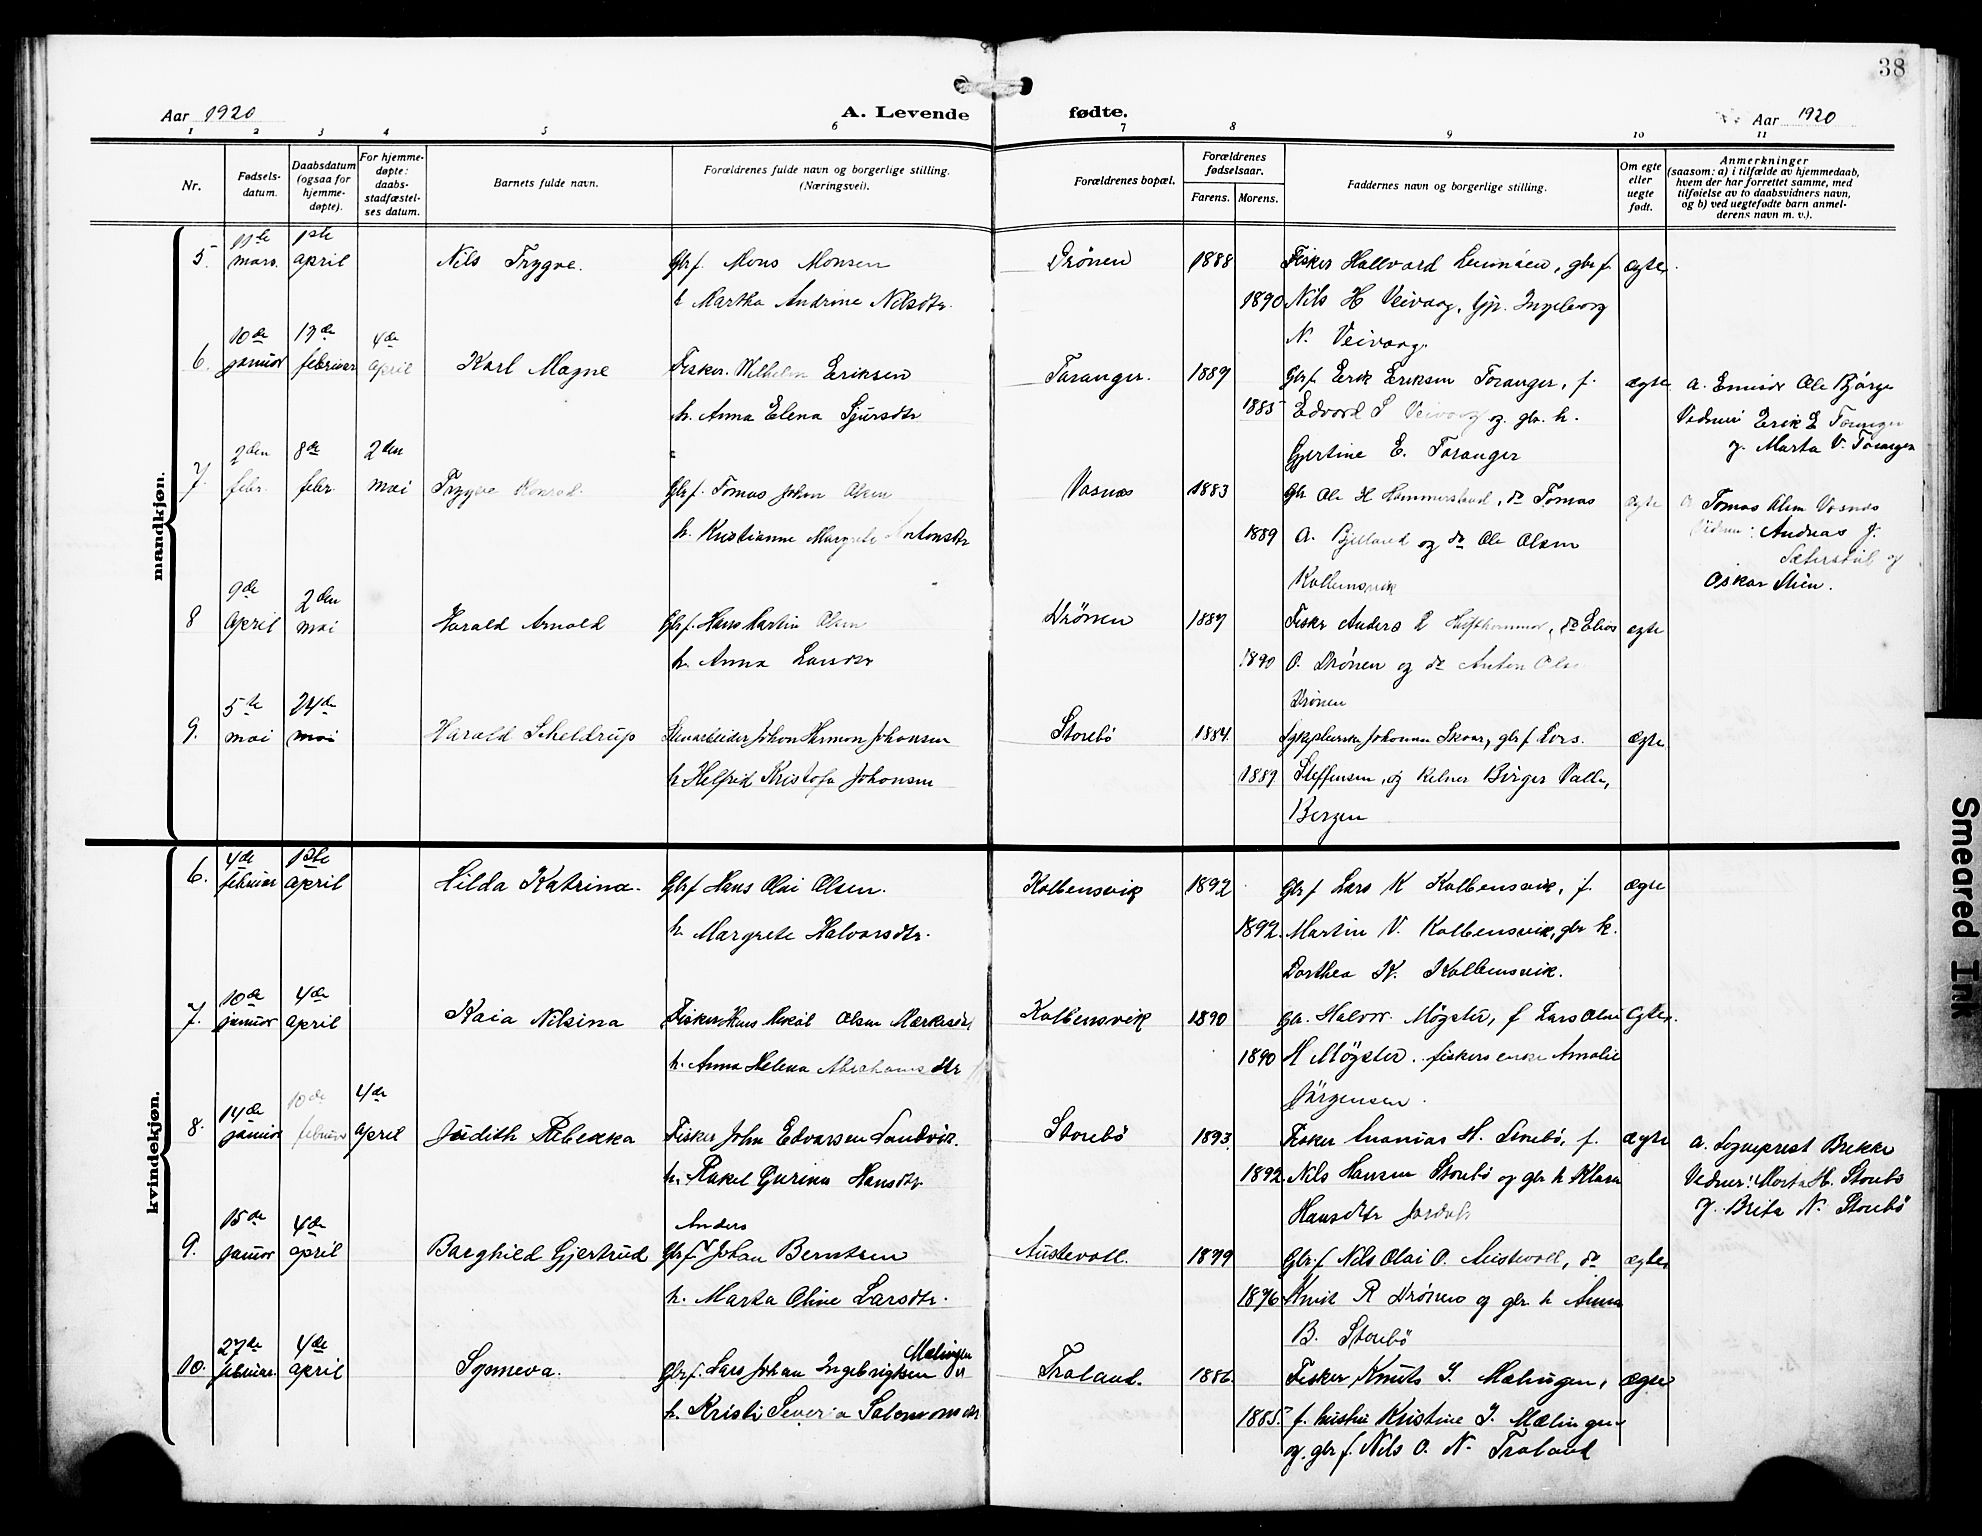 38
Aar 1920
A. Levende fødte.
Aar 1920
1 2 3 4 5 6 7 8 9 10 11
Nr.
Fødsels-
datum.
Daabsdatum
(ogsaa for
hjemme-
døpte).
For hjemme-
døpte:
daabs-
stadfæstel-
ses datum.
Barnets fulde navn.
Forældrenes fulde navn og borgerlige stilling.
(Næringsvei).
Forældrenes bopæl.
Forældrenes
fødselsaar.
Farens. Morens.
Faddernes navn og borgerlige stilling.
Om egte
eller
uegte
født.
Anmerkninger
(saasom: a) i tilfælde av hjemmedaab,
hvem der har forrettet samme, med
tilføielse av to daabsvidners navn,
og b) ved uegtefødte barn anmel-
derens navn m. v.).
mandkjøn.
11te 1ste
5. mars. april Nils Trygve. Gbrf. Mons Monsen Drönen 1888 Fisker Hallvard, gbr f. ægte.
h Martha Andrine Nilsdtr. 1890 Nils H Veivaag, Gp. Ingeborg
N. Veivaag.
10de 17de 4de
6. januar februar april Karl Magne Fisker. Wilhelm Eriksen Toranger. 1889 Gbrf Erik Eriksen Toranger, f. ægte a. Emissær Ole Bjórge
h. Anna Elena Sjursdtr 1885 Edvard S Veivaag og gbr. h. Vidner: Erik E Toranger
Gjertine E. Toranger og Marta V. Toranger
2den 8de 2den
7. febr. febr. mai Trygve Konrad. Gbrf. Tomas Johan Olsen Vasnes 1883 Gbr Ole H Hammersland, do Tomas ægte a Tomas Olsen Vasnes
h. Kristianne Margrete Antonsdtr 1889 A. Bjelland og do Ole Olsen Vidner: Andreas J.
Kolbensvik Sæterstøl og
Oskar Stien.
9de 2den
8 april mai Harald Arnold Gbrf. Hans Martin Olsen Drönen 1887 Fisker Anders Hufthammer, do Elias ægte
h. Anna Larsdtr 1890 O. Drönen og do Anton Olsen
Drönen
5te 24de
9. mai mai Harald Scheldrup Stenarbeider Johan Herman Johansen Storebö 1884. Johannes Skaar, gbr f Lars. ægte
h Helfrid Kristofa Johansen 1889 Steffensen, og Kelner Birger Valle,
Bergen
kvindekjøn.
4de 1ste
6. februar april Hilda Katrina. Gbrf Hans Olai Olsen. Kolbensvik 1892 Gbrf Lars K Kolbensvik, f. ægte
h. Margrete Halvorsdtr. 1892. Martin V. Kolbensvik, gbr h.
Dorthea K. Kolbensvik.
10de 4de
7. januar april Kaia Nilsina Fisker Hans Mikal Olsen Kolbensvik 1890 Gbr. Halvor Møgster, f Lars Olai Ægte.
h. Anna Helena Abrahamsdtr 1890 H Møgster. fiskers enke Amalie
Jørgensen.
14de 10de 4de
8. januar februar april Judith Rebekka Fisker John Edvarsen Sandvik. Storebö 1893. Fisker Ananias H. Storebö, f. ægte a. Sogneprest Brekke
h. Rakel Gurina Hansdtr 1892 Nils Hansen Storebö og gbr h Klara Vidner: Marta H. Storebö
Hansdtr og Brita N. Storebö
15de 4de Anders
9. januar april Borghild Gjertrud Gbrf Johan Berntsen Austevoll. 1879 Gbr. f Nils Olai O. Austevoll, do ægte.
h. Marta Oline Larsdtr. 1876 Knut R Drönen og gbr h Anna
B. Storebö
27de 4de Malingen
10. februar april Synneva. Gbrf. Lars Johan Ingebrigtsen Troland. 1886. Fisker Knut I. Mælingen, ægte
h. Kristi Severia Salomonsdtr 1885. f. hustru Kristine I. Mælingen
og gbr f. Nils O. N. Troland
Smeared Ink